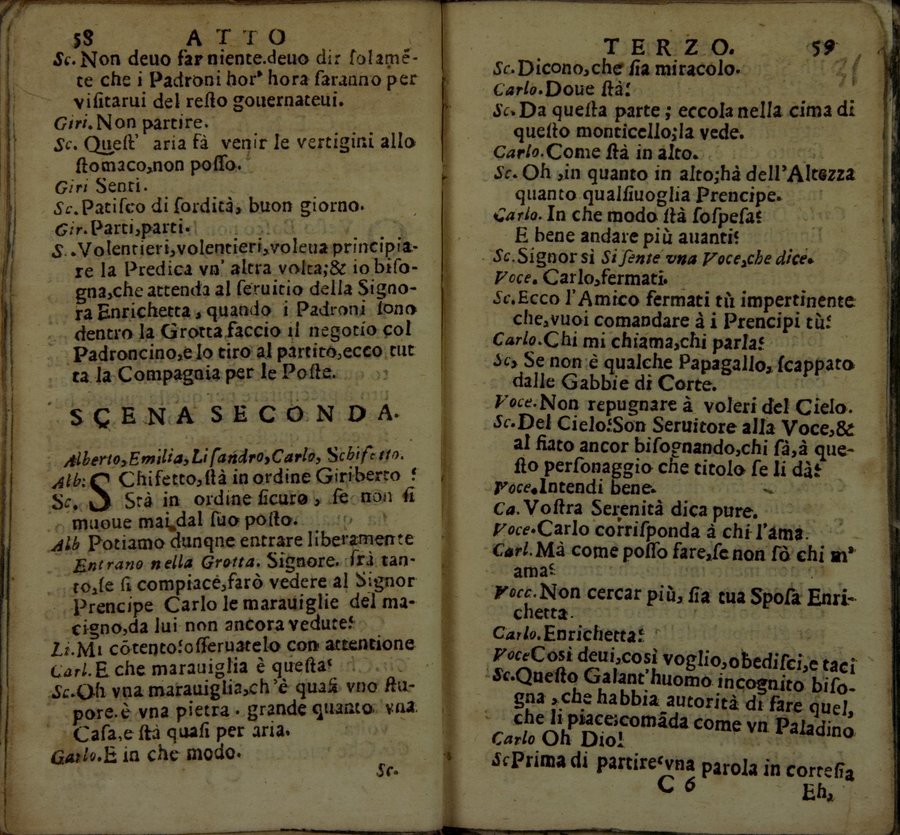 58 ATTO
Sc. Non deuo far niente.deuo dir ſolamẽ-
te che i Padroni hor' hora ſaranno per
viſitarui del reſto gouernateui.
Giri. Non partire.
Sc. Queſt' aria fà venir le vertigini allo
ſtomaco,non poſſo.
Giri Senti.
Sc. Patiſco di ſordità, buon giorno.
Gir. Parti,parti.
S. .Volentieri,volentieri,voleua principia-
re la Predica vn' altra volta;& io biſo-
gna,che attenda al ſeruitio della Signo-
ra Enrichetta, quando i Padroni ſono
dentro la Grotta faccio il negotio col
Padroncino,e lo tiro al partito,ecco tut
ta la Compagnia per le Poſte.
SCENA SECONDA.
Alberto,Emilia,Liſandro,Carlo, Schifetto.
Alb: SChifetto,ſtà in ordine Giriberto ?
Sc. Stà in ordine ſicuro, ſe non ſi
muoue mai dal ſuo poſto.
Alb Potiamo dunqne entrare liberamente
Entrano nella Grotta. Signore. ſrà tan-
to,ſe ſi compiace,farò vedere al Signor
Prencipe Carlo le marauiglie del ma-
cigno,da lui non ancora vedute?
Li. Mi cõtento:oſſeruatelo con attentione
Carl. E che marauiglia è queſta?
Sc. Oh vna marauiglia,ch'è quaſi vno ſtu-
pore.è vna pietra. grande quanto vna
Caſa,e ſtà quaſi per aria.
Garlo. E in che modo.
Sc.
TERZO. 59
31
Sc. Dicono,che ſia miracolo.
Carlo. Doue ſtà?
Sc. Da queſta parte; eccola nella cima di
queſto monticello;la vede.
Carlo. Come ſtà in alto.
Sc. Oh ,in quanto in alto;hà dell'Altezza
quanto qualſiuoglia Prencipe.
Carlo. In che modo ſtà ſoſpeſa?
E bene andare più auanti?
Sc. Signor sì Si ſente vna Voce,che dice.
Voce. Carlo,fermati.
Sc. Ecco l'Amico fermati tù impertinente
che,vuoi comandare à i Prencipi tù?
Carlo. Chi mi chiama,chi parla?
Sc, Se non è qualche Papagallo, ſcappato
dalle Gabbie di Corte.
Voce. Non repugnare à voleri del Cielo.
Sc. Del Cielo?Son Seruitore alla Voce,&
al fiato ancor biſognando,chi ſà,à que-
ſto perſonaggio che titolo ſe li dà?
Voce. Intendi bene.
Ca. Voſtra Serenità dica pure.
Voce. Carlo corriſponda à chi l'ama.
Carl. Mà come poſſo fare,ſe non ſò chi m'
ama?
Vocc. Non cercar più, ſia tua Spoſa Enri-
chetta.
Carlo. Enrichetta?
Voce Così deui,così voglio,obediſci,e taci
Sc. Queſto Galant'huomo incognito biſo-
gna ,che habbia autorità di fare quel,
che li piace;comãda come vn Paladino
Carlo Oh Dio!
Sc Prima di partire?vna parola in corteſia
C 6 Eh,